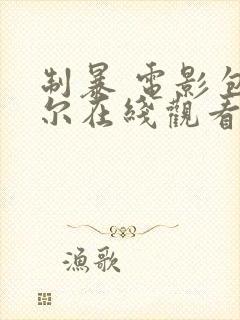 制暴 電影包
尔在綫觀看
漁歌